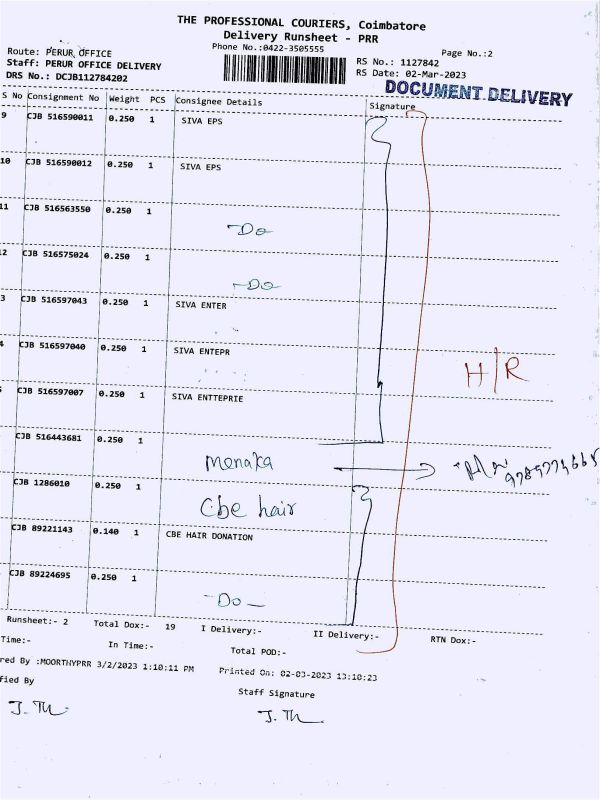 THE PROFESSIONAL COURIERS, Coimbatore
Delivery Runsheet - PRR
Phone No.:0422-3505555
Page No.:2
Route: PERUR OFFICE
Staff: PERUR OFFICE DELIVERY
DRS No.: DCJB112784202
RS No.: 1127842
RS Date: 02-Mar-2023
DOCUMENT DELIVERY
S No Consignment No Weight PCS Consignee Details Signature
9 CJB 516590011 0.250 1 SIVA EPS
10 CJB 516590012 0.250 1 SIVA EPS
11 CJB 516563550 0.250 1
-Do
12 CJB 516575024 0.250 1
-Do
3 CJB 516597043 0.250 1 SIVA ENTER
4 CJB 516597040 0.250 1 SIVA ENTEPR
H/R
5 CJB 516597007 0.250 1 SIVA ENTTEPRIE
CJB 516443681 0.250 1
Menaka
CJB 1286010 0.250 1
Cbe hair
CJB 89221143 0.140 1 CBE HAIR DONATION
CJB 89224695 0.250 1
-Do-
Runsheet:- 2 Total Dox:- 19 I Delivery:- II Delivery:- RTN Dox:-
Time:- In Time:- Total POD:-
red By :MOORTHYPRR 3/2/2023 1:10:11 PM Printed On: 02-03-2023 13:10:23
fied By Staff Signature